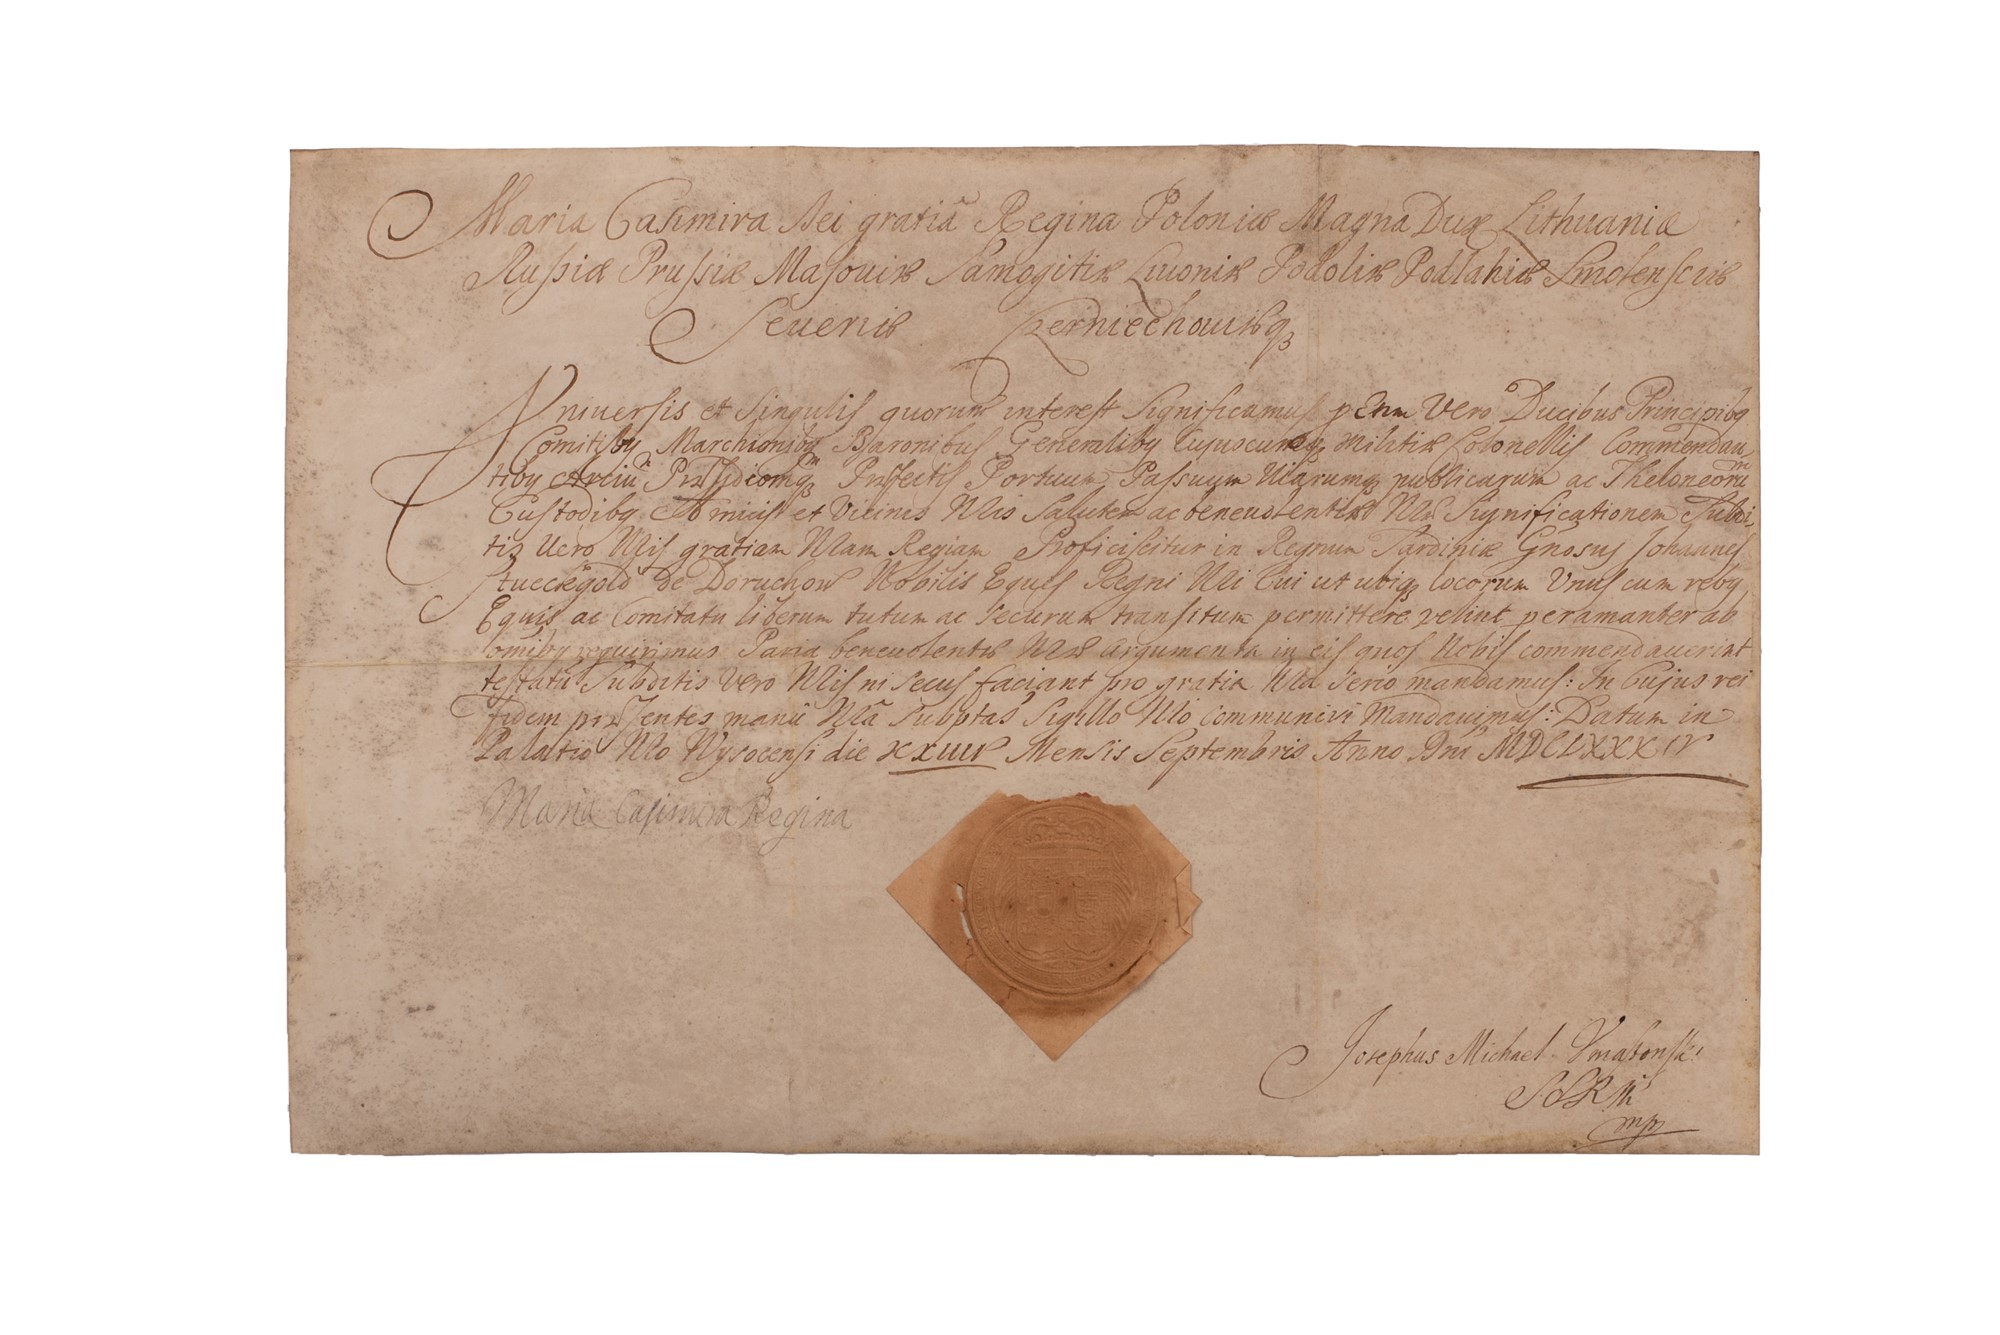 Maria Casimira Dei gratiâ Regina Poloniæ Magna Dux Lithuaniæ
Russiæ Prussiæ Masoviæ Samogitiæ Livoniæ Podoliæ Podlahiæ Smolensciæ
Severiæ Czerniechoviæq;
Vniversis et Singulis quorum interest Significamus Vero Ducibus Principibq
Comitibq Marchionibq Baronibus Generalibq Cujuscumq; Militiæ Colonellis Commendan
tibq Arciū Præsidiorumq; Præfectis Portuum Passuum Viarumq; publicarum ac Theloneorū
Custodibq. Amicis et Vicinis Nris Salutem ac benevolentiæ Næ Significationem Subdi
tis Vero Nris gratiam Nram Regiam Proficiscitur in Regnum Sardiniæ Gnosus Johannes
Stueckgold de Doruchow Nobilis Eques Regni Nri Cui ut ubiq; locorum Vnus cum rebq
Equis ac Comitatu liberum tutum ac Securum transitum permittere velint peramanter ab
omibq requirimus Paria benevolentiæ Næ argumenta in eis quos Nobis commendaverint
testaturi Subditis Vero Nris ni secus faciant pro gratia Nra Serio mandamus: In Cujus rei
fidem præsentes manū Nrâ Subptas Sigillo Nro Communiri Mandavimus: Datum in
Palatio Nro Wysocensi die Mensis Septembris Anno Dni MDCLXXXIV
Maria Casimira Regina
Josephus Michael
SSRM
mpp